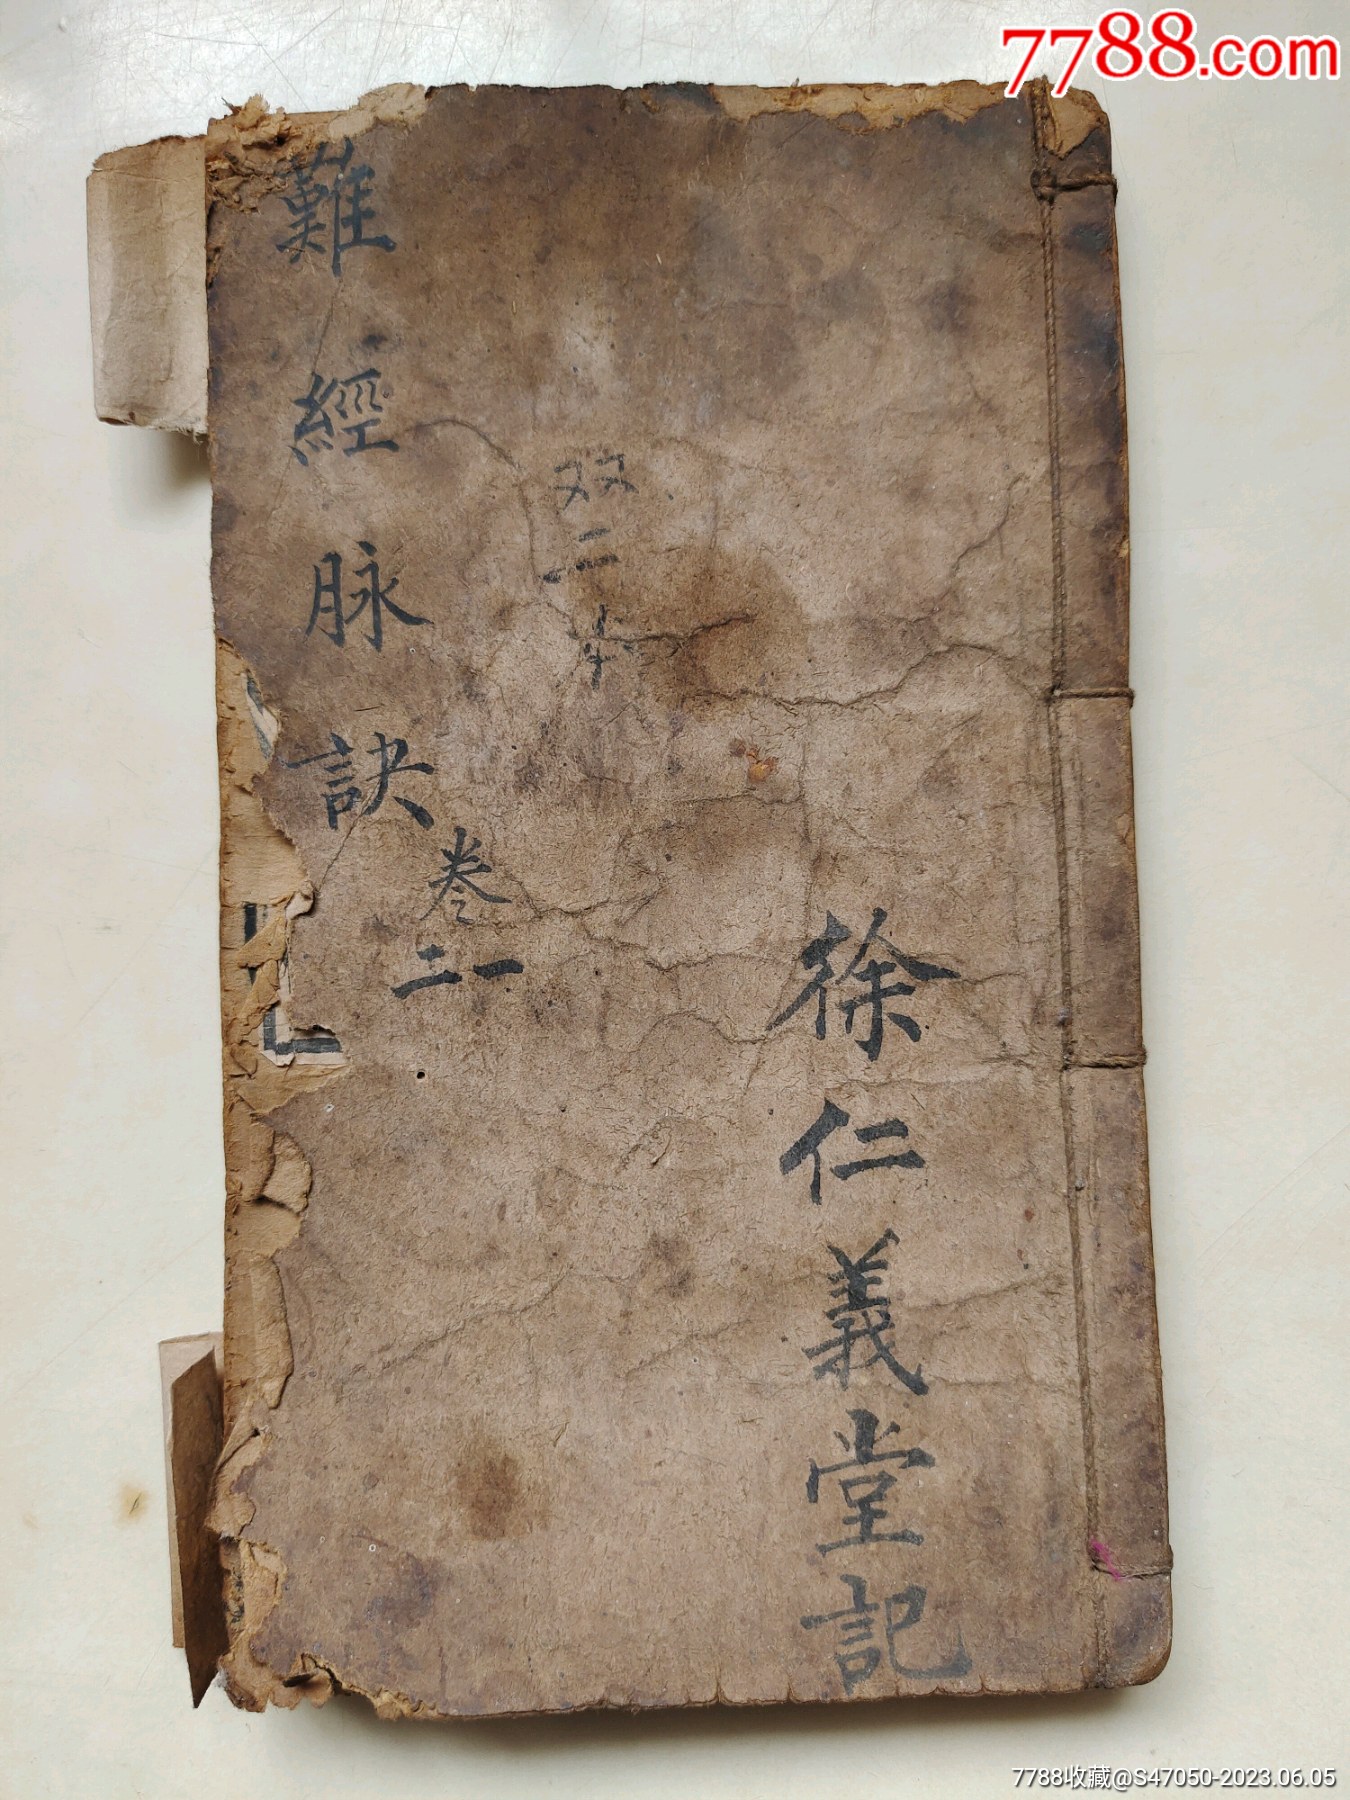 7788.com
徐仁義堂記
双二本
難經脉訣
卷
一二
7788收藏@S47050-2023.06.05